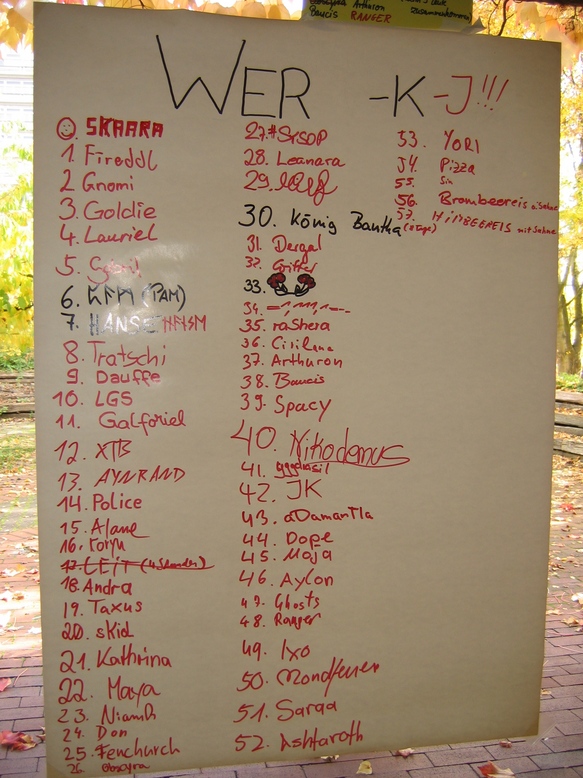 Arthuron
Baucis RANGER
WER -K-J!!!
SKAARA
1. Fireddl
2 Gnomi
3. Goldie
4. Lauriel
5.
6. (PAM)
7. HANSE
8. Tratschi
9. Dauffe
10. LGS
11. Galforiel
12. XTB
13. AYNRAND
14. Police
15. Alane
16. Toryn
17. LEIT (4 Stunden)
18. Andra
19. Taxus
20. skid
21. Kathrina
22. Maya
23. Niamh
24. Don
25. Fenchurch
26.
27. #SrSOP
28. Leanara
29.
30. König Bantha
31. Dergal
32. Grifter
33.
34.
35. raShera
36.
37. Arthuron
38. Baucis
39. Spacy
40. Nikodemus
41. yggdrasil
42. JK
43. aDamanTla
44. Dope
45. Maja
46. Aylon
47. Ghosts
48. Ranger
49. Ixo
50. Mondfeuer
51. Saraa
52. Ashtaroth
53. YORI
54. Pizza
55. Sin
56. Brombeereis o. Sahne
57. HIMBEEREIS mit Sahne